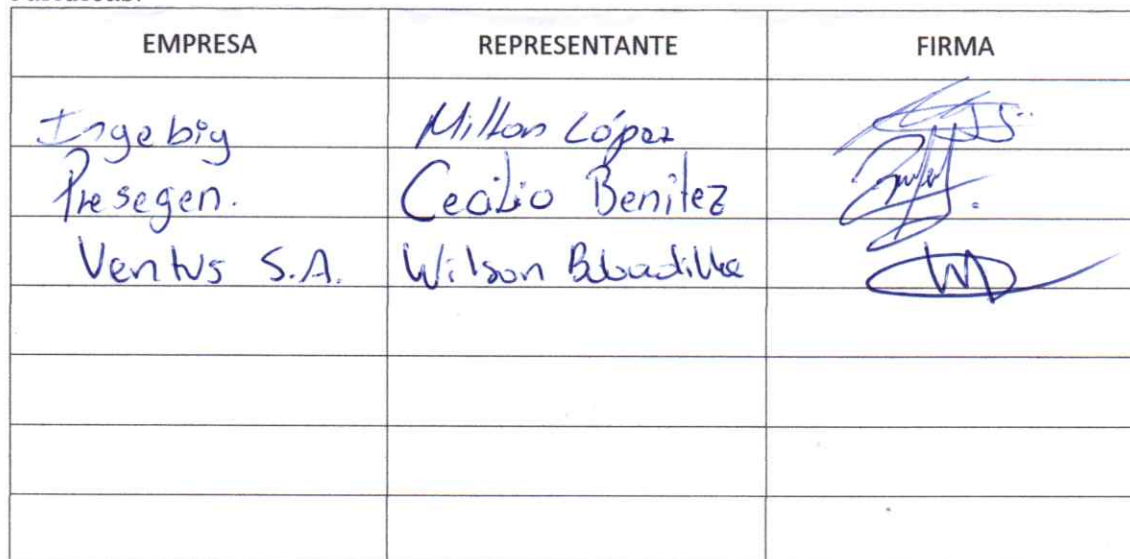 EMPRESA REPRESENTANTE FIRMA
Ingebig Milton López
Presegen. Cecilio Benitez
Ventus S.A. Wilson Bobadilla